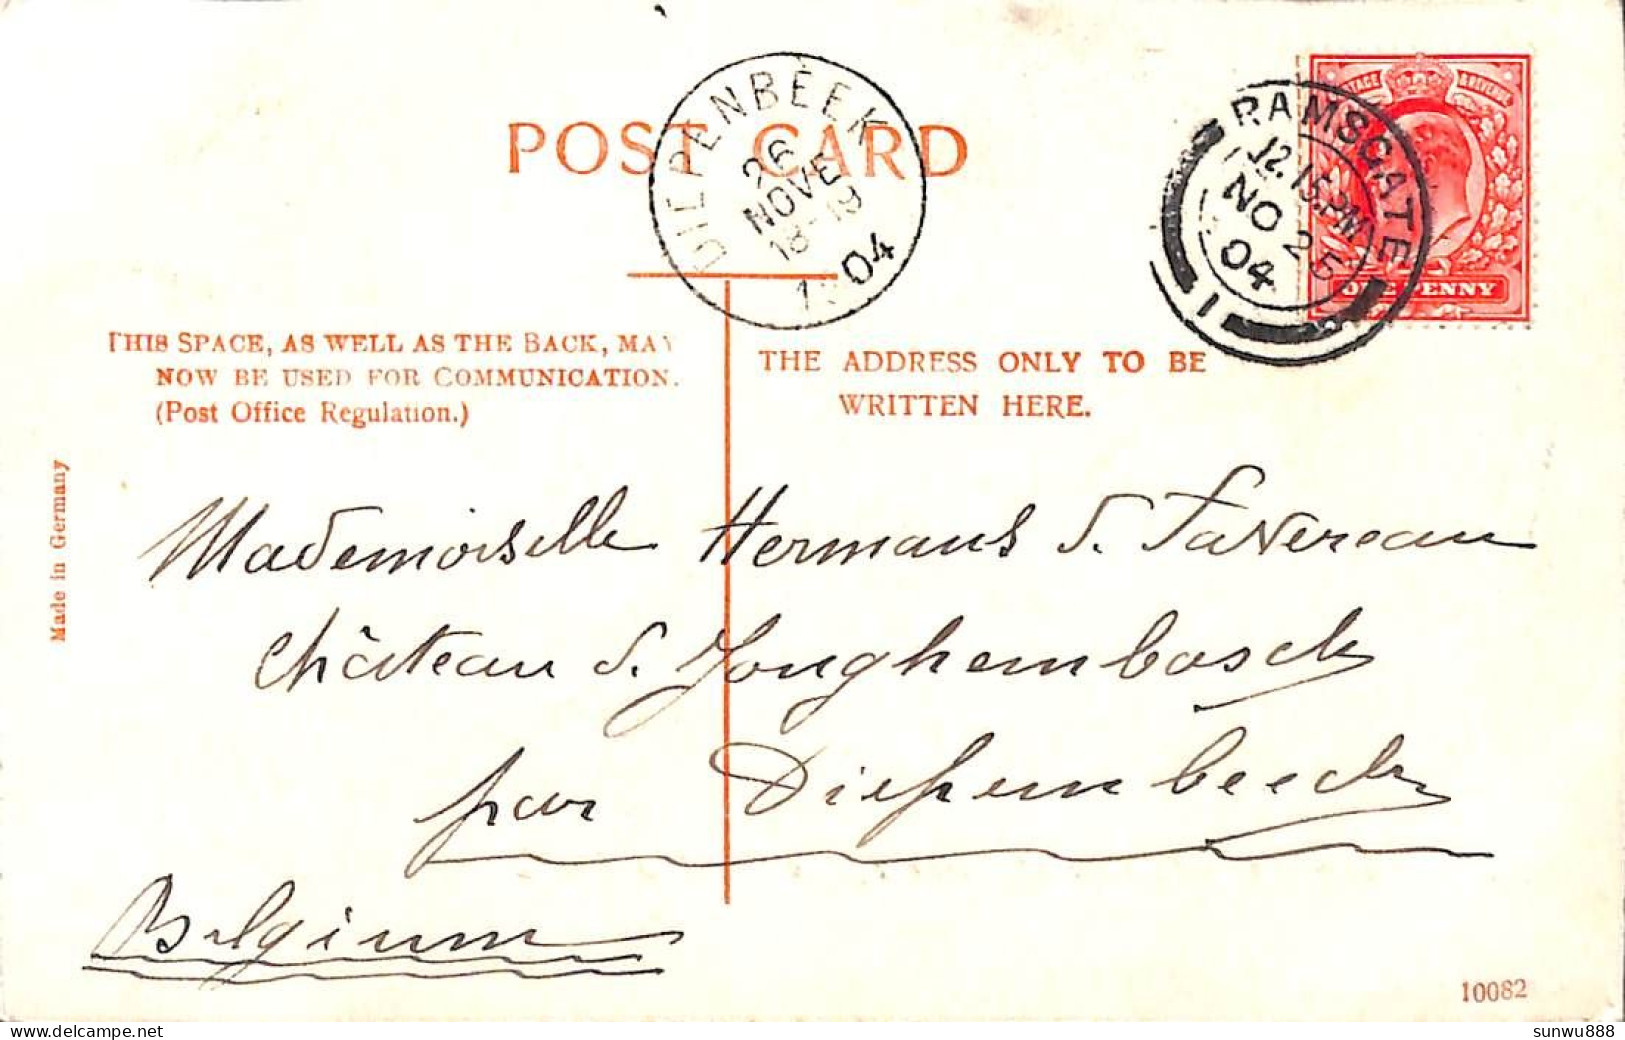 POST CARD
DIEPENBEEK
26
NOVE
18-19
1904
RAMSGATE
12.15.PM
NO 25
04
1
POSTAGE & REVENUE
ONE PENNY
THIS SPACE, AS WELL AS THE BACK, MAY
NOW BE USED FOR COMMUNICATION.
(Post Office Regulation.)
THE ADDRESS ONLY TO BE
WRITTEN HERE.
Made in Germany
Mademoiselle Hermans d. Favereau
Château d. Jonghembosch
par Diepembeeck
Belgium
10082
sunwu888